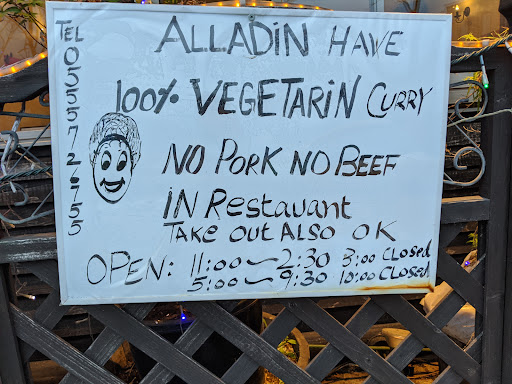 TEL 05555726755
ALLADiN HAVE
100% VEGETARiN CURRY
NO PORK NO BEEF
iN Restauant
TAKE out ALSO OK
OPEN: 11:00~2:30 3:00 CLOSED
5:00~9:30 10:00 CLOSED